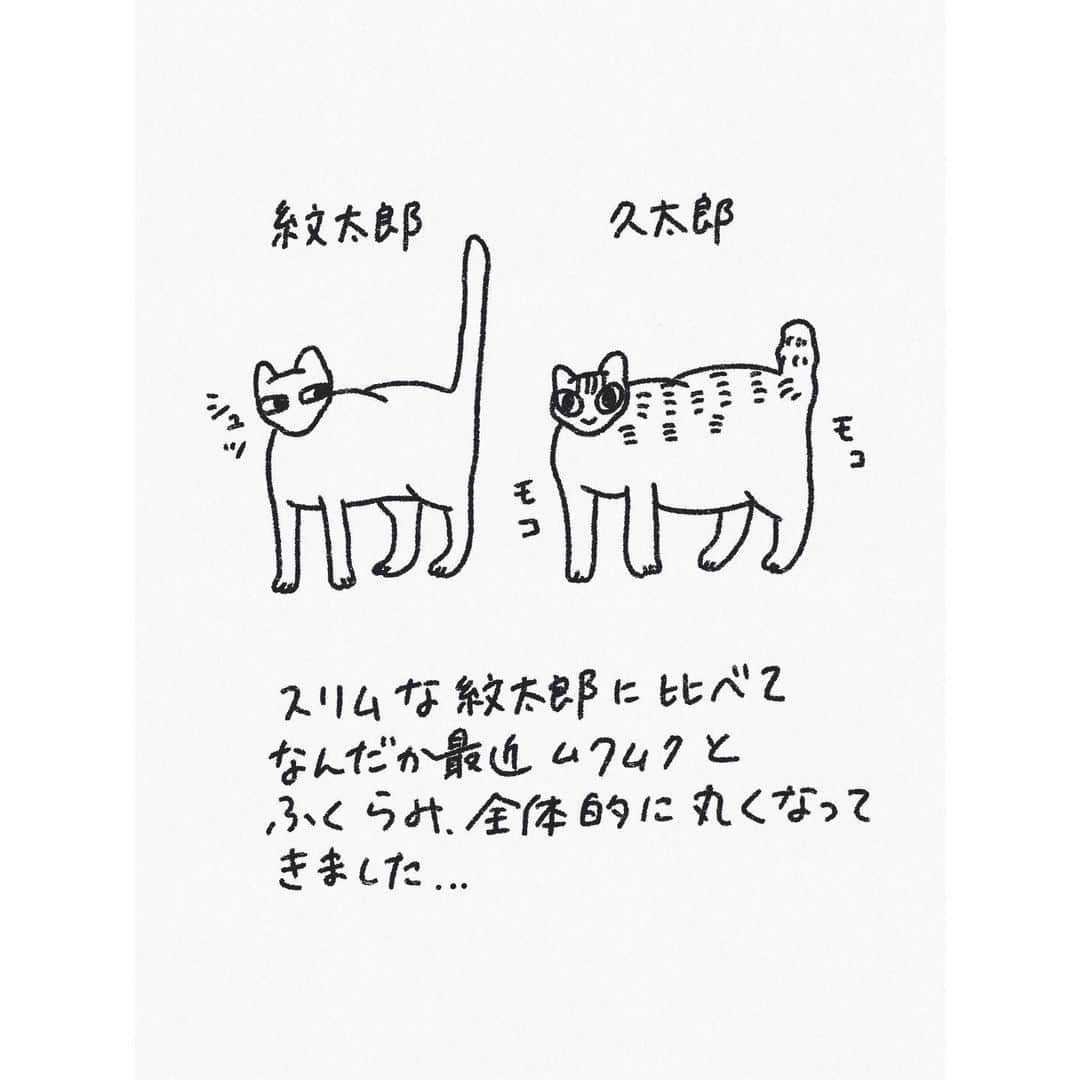 紋太郎
久太郎
シュッ
モコ
モコ
スリムな紋太郎に比べて
なんだか最近ムクムクと
ふくらみ、全体的に丸くなって
きました...